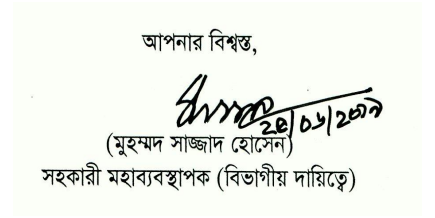 আপনার বিশ্বস্ত,
(মুহম্মদ সাজ্জাদ হোসেন)
সহকারী মহাব্যবস্থাপক (বিভাগীয় দায়িত্বে)